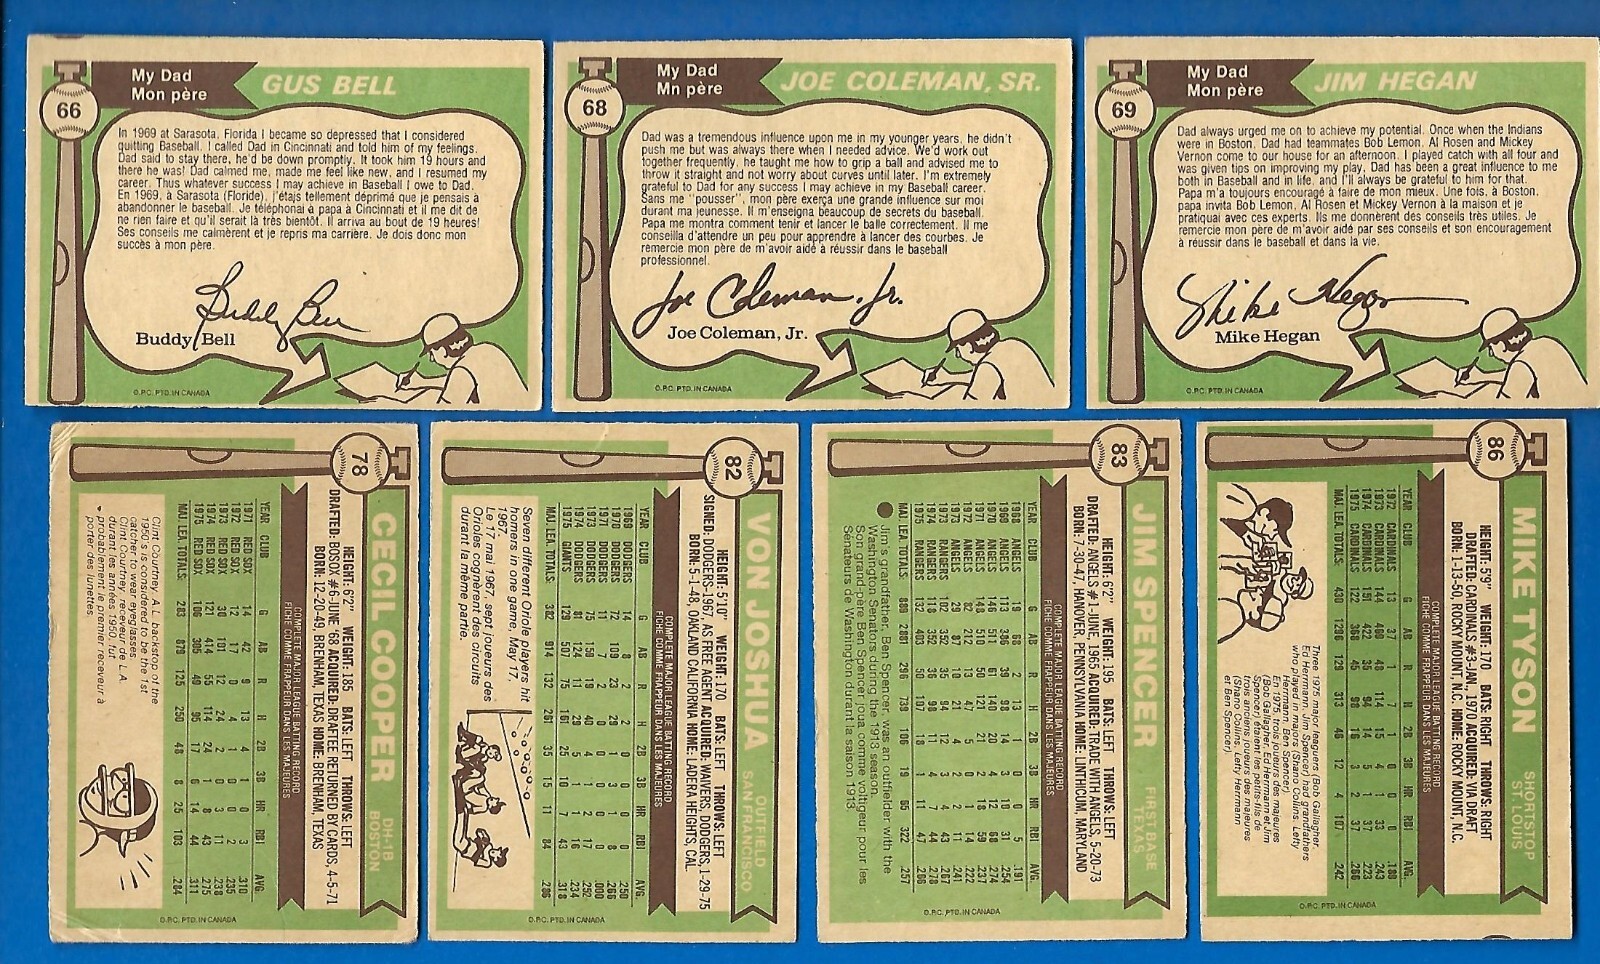 66
My Dad
Mon père
GUS BELL
In 1969 at Sarasota, Florida I became so depressed that I considered
quitting Baseball. I called Dad in Cincinnati and told him of my feelings.
Dad said to stay there, he'd be down promptly. It took him 19 hours and
there he was! Dad calmed me, made me feel like new, and I resumed my
career. Thus whatever success I may achieve in Baseball I owe to Dad.
En 1969, à Sarasota (Floride), j'étais tellement déprimé que je pensais à
abandonner le baseball. Je téléphonai à papa à Cincinnati et il me dit de
ne rien faire et qu'il serait là très bientôt. Il arriva au bout de 19 heures!
Ses conseils me calmèrent et je repris ma carrière. Je dois donc mon
succès à mon père.
Buddy Bell
Buddy Bell
O.P.C. PTD. IN CANADA
68
My Dad
Mn père
JOE COLEMAN, SR.
Dad was a tremendous influence upon me in my younger years, he didn't
push me but was always there when I needed advice. We'd work out
together frequently, he taught me how to grip a ball and advised me to
throw it straight and not worry about curves until later. I'm extremely
grateful to Dad for any success I may achieve in my Baseball career.
Sans me "pousser", mon père exerça une grande influence sur moi
durant ma jeunesse. Il m'enseigna beaucoup de secrets du baseball.
Papa me montra comment tenir et lancer la balle correctement. Il me
conseilla d'attendre un peu pour apprendre à lancer des courbes. Je
remercie mon père de m'avoir aidé à réussir dans le baseball
professionnel.
Joe Coleman, Jr.
Joe Coleman, Jr.
O.P.C. PTD. IN CANADA
69
My Dad
Mon père
JIM HEGAN
Dad always urged me on to achieve my potential. Once when the Indians
were in Boston, Dad had teammates Bob Lemon, Al Rosen and Mickey
Vernon come to our house for an afternoon. I played catch with all four and
was given tips on improving my play. Dad has been a great influence to me
both in Baseball and in life, and I'll always be grateful to him for that.
Papa m'a toujours encouragé à faire de mon mieux. Une fois, à Boston,
papa invita Bob Lemon, Al Rosen et Mickey Vernon à la maison et je
pratiquai avec ces experts. Ils me donnèrent des conseils très utiles. Je
remercie mon père de m'avoir aidé par ses conseils et son encouragement
à réussir dans le baseball et dans la vie.
Mike Hegan
Mike Hegan
78
CECIL COOPER
DH-1B
BOSTON
HEIGHT: 6'2" WEIGHT: 185 BATS: LEFT THROWS: LEFT
DRAFTED: BOSOX #6-JUNE '68 ACQUIRED: DRAFTEE RETURNED BY CARDS, 4-5-71
BORN: 12-20-49, BRENHAM, TEXAS HOME: BRENHAM, TEXAS
COMPLETE MAJOR LEAGUE BATTING RECORD
FICHE COMME FRAPPEUR DANS LES MAJEURES
YEAR CLUB G AB R H 2B 3B HR RBI AVG.
1971 RED SOX 14 42 9 13 4 1 0 3 .310
1972 RED SOX 12 17 0 4 1 0 0 2 .235
1973 RED SOX 30 101 12 24 2 0 3 11 .238
1974 RED SOX 121 414 55 114 24 1 8 43 .275
1975 RED SOX 106 305 49 95 17 6 14 44 .311
MAJ. LEA. TOTALS: 283 879 125 250 48 8 25 103 .284
Clint Courtney, A.L. backstop of the
1950's is considered to be the 1st
catcher to wear eyeglasses.
Clint Courtney, receveur de L.A.
durant les années 1950, fut
probablement le premier receveur à
porter des lunettes.
O.P.C. PTD. IN CANADA
82
VON JOSHUA
OUTFIELD
SAN FRANCISCO
HEIGHT: 5'10" WEIGHT: 170 BATS: LEFT THROWS: LEFT
SIGNED: DODGERS-1967, AS FREE AGENT ACQUIRED: WAIVERS, DODGERS, 1-29-75
BORN: 5-1-48, OAKLAND CALIFORNIA HOME: LADERA HEIGHTS, CAL.
COMPLETE MAJOR LEAGUE BATTING RECORD
FICHE COMME FRAPPEUR DANS LES MAJEURES
YEAR CLUB G AB R H 2B 3B HR RBI AVG.
1969 DODGERS
1970 DODGERS
1971 DODGERS
1973 DODGERS
1974 DODGERS
1975 GIANTS 129 507 75 161 25 10 7 43 .318
MAJ. LEA. TOTALS:
Seven different Oriole players hit
homers in one game, May 17,
1967.
Le 17 mai 1967, sept joueurs des
Orioles cognèrent des circuits
durant la même partie.
O.P.C. PTD. IN CANADA
83
JIM SPENCER
FIRST BASE
TEXAS
HEIGHT: 6'2" WEIGHT: 195 BATS: LEFT THROWS: LEFT
DRAFTED: ANGELS #1-JUNE, 1965 ACQUIRED: TRADE WITH ANGELS, 5-20-73
BORN: 7-30-47, HANOVER, PENNSYLVANIA HOME: LINTHICUM, MARYLAND
COMPLETE MAJOR LEAGUE BATTING RECORD
FICHE COMME FRAPPEUR DANS LES MAJEURES
YEAR CLUB G AB R H 2B 3B HR RBI AVG.
1968 ANGELS
1969 ANGELS
1970 ANGELS
1971 ANGELS
1972 ANGELS
1973 ANGELS
1973 RANGERS
1974 RANGERS
1975 RANGERS
MAJ. LEA. TOTALS:
Jim's grandfather, Ben Spencer, was an outfielder with the
Washington Senators during the 1913 season.
Son grand-père Ben Spencer joua comme voltigeur pour les
Sénateurs de Washington durant la saison 1913.
O.P.C. PTD. IN CANADA
86
MIKE TYSON
SHORTSTOP
ST. LOUIS
HEIGHT: 5'9" WEIGHT: 170 BATS: RIGHT THROWS: RIGHT
DRAFTED: CARDINALS #3-JAN., 1970 ACQUIRED: VIA DRAFT
BORN: 1-13-50, ROCKY MOUNT, N.C. HOME: ROCKY MOUNT, N.C.
COMPLETE MAJOR LEAGUE BATTING RECORD
FICHE COMME FRAPPEUR DANS LES MAJEURES
YEAR CLUB G AB R H 2B 3B HR RBI AVG.
1972 CARDINALS
1973 CARDINALS
1974 CARDINALS
1975 CARDINALS
MAJ. LEA. TOTALS:
Three 1975 major leaguers (Bob Gallagher,
Ed Herrmann, Jim Spencer) had grandfathers
who played in majors (Shano Collins, Letty
Herrmann, Ben Spencer).
En 1975, trois joueurs des majeures
(Bob Gallagher, Ed Herrmann et Jim
Spencer) étaient les petits-fils de
trois anciens joueurs des majeures
(Shano Collins, Letty Herrmann
et Ben Spencer).
O.P.C. PTD. IN CANADA